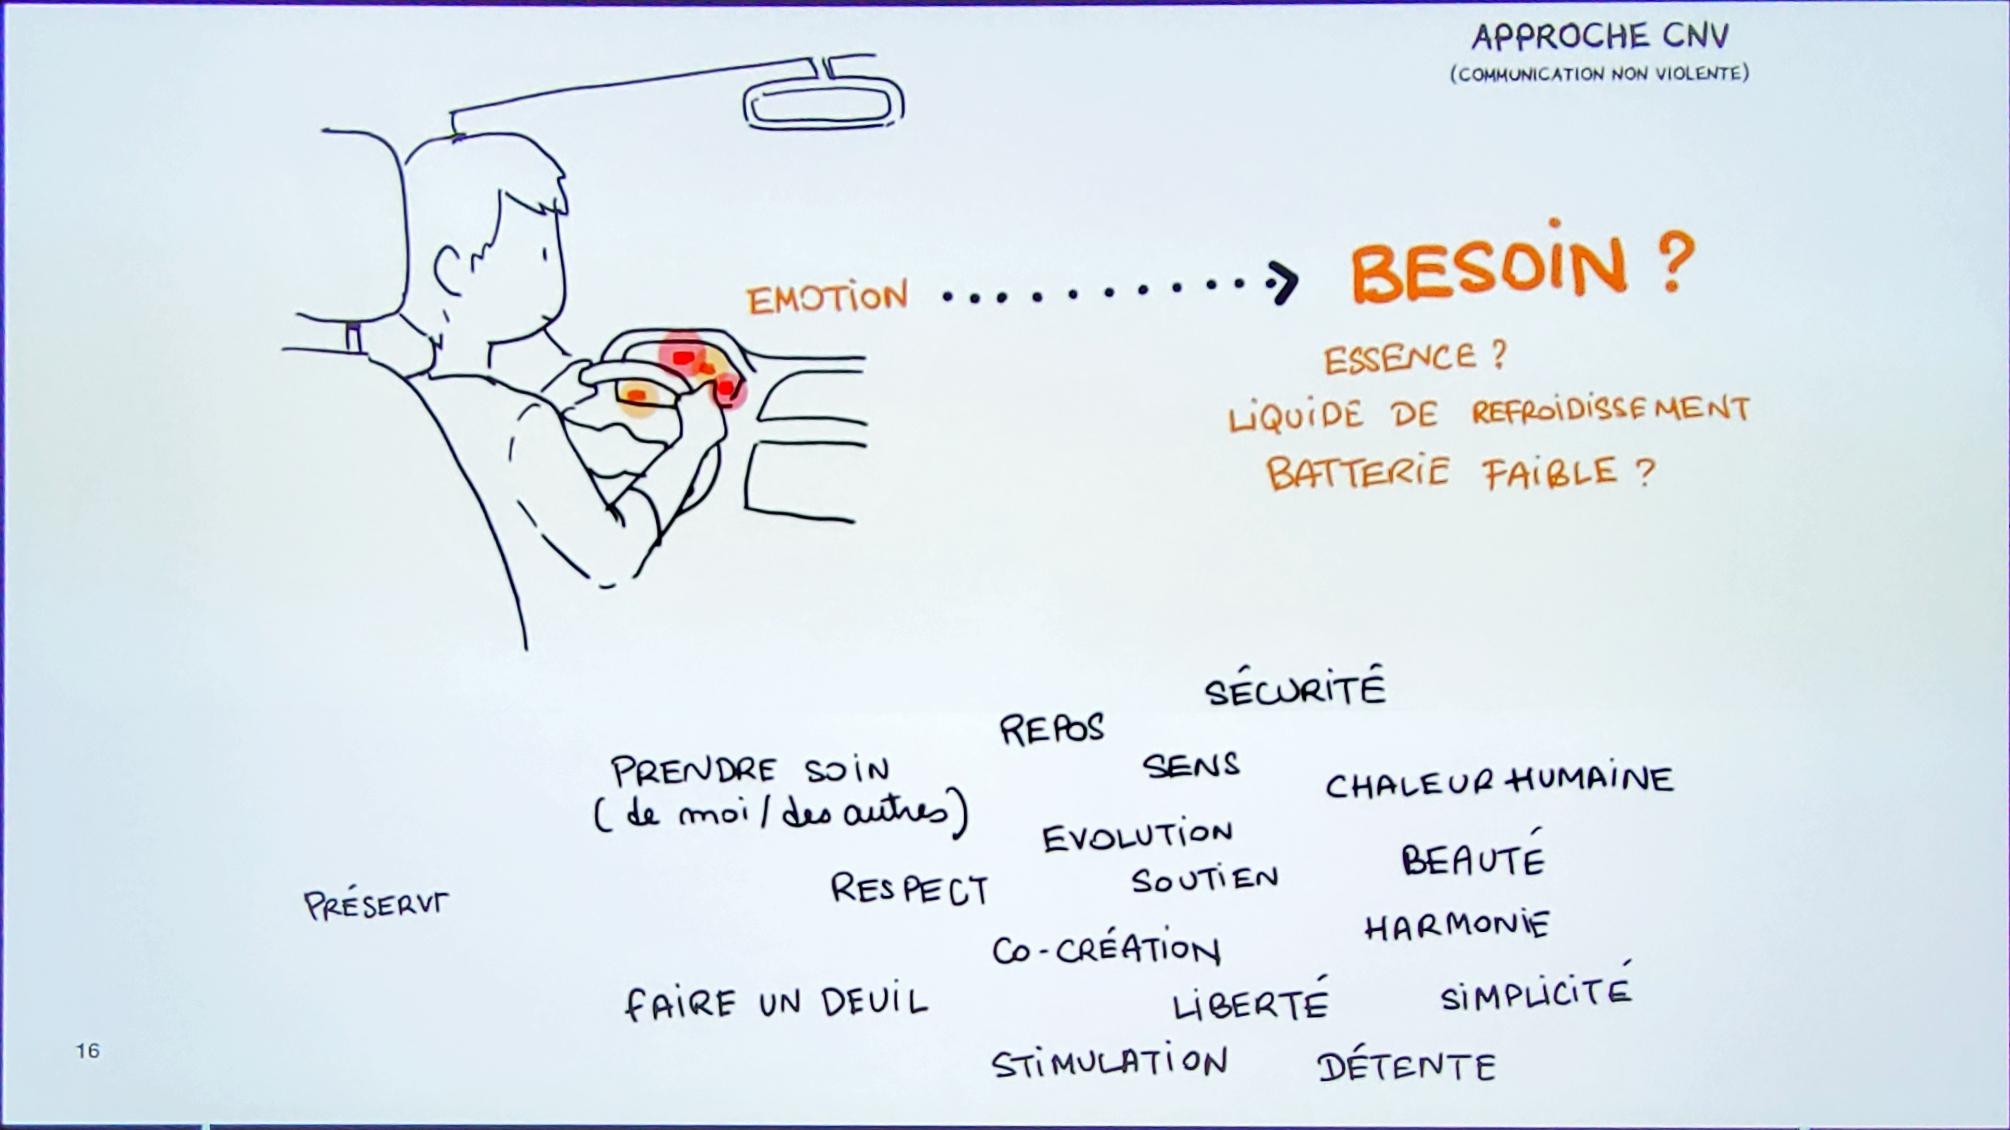 APPROCHE CNV
(COMMUNICATION NON VIOLENTE)
EMOTION
BESOIN ?
ESSENCE ?
LIQUIDE DE REFROIDISSEMENT
BATTERIE FAIBLE ?
SÉCURITÉ
REPOS
PRENDRE SOIN
(de moi / des autres)
SENS
CHALEUR HUMAINE
EVOLUTION
BEAUTÉ
RESPECT
SOUTIEN
PRÉSERVR
HARMONIE
CO-CRÉATION
FAIRE UN DEUIL
LIBERTÉ
SIMPLICITÉ
STIMULATION
DÉTENTE
16